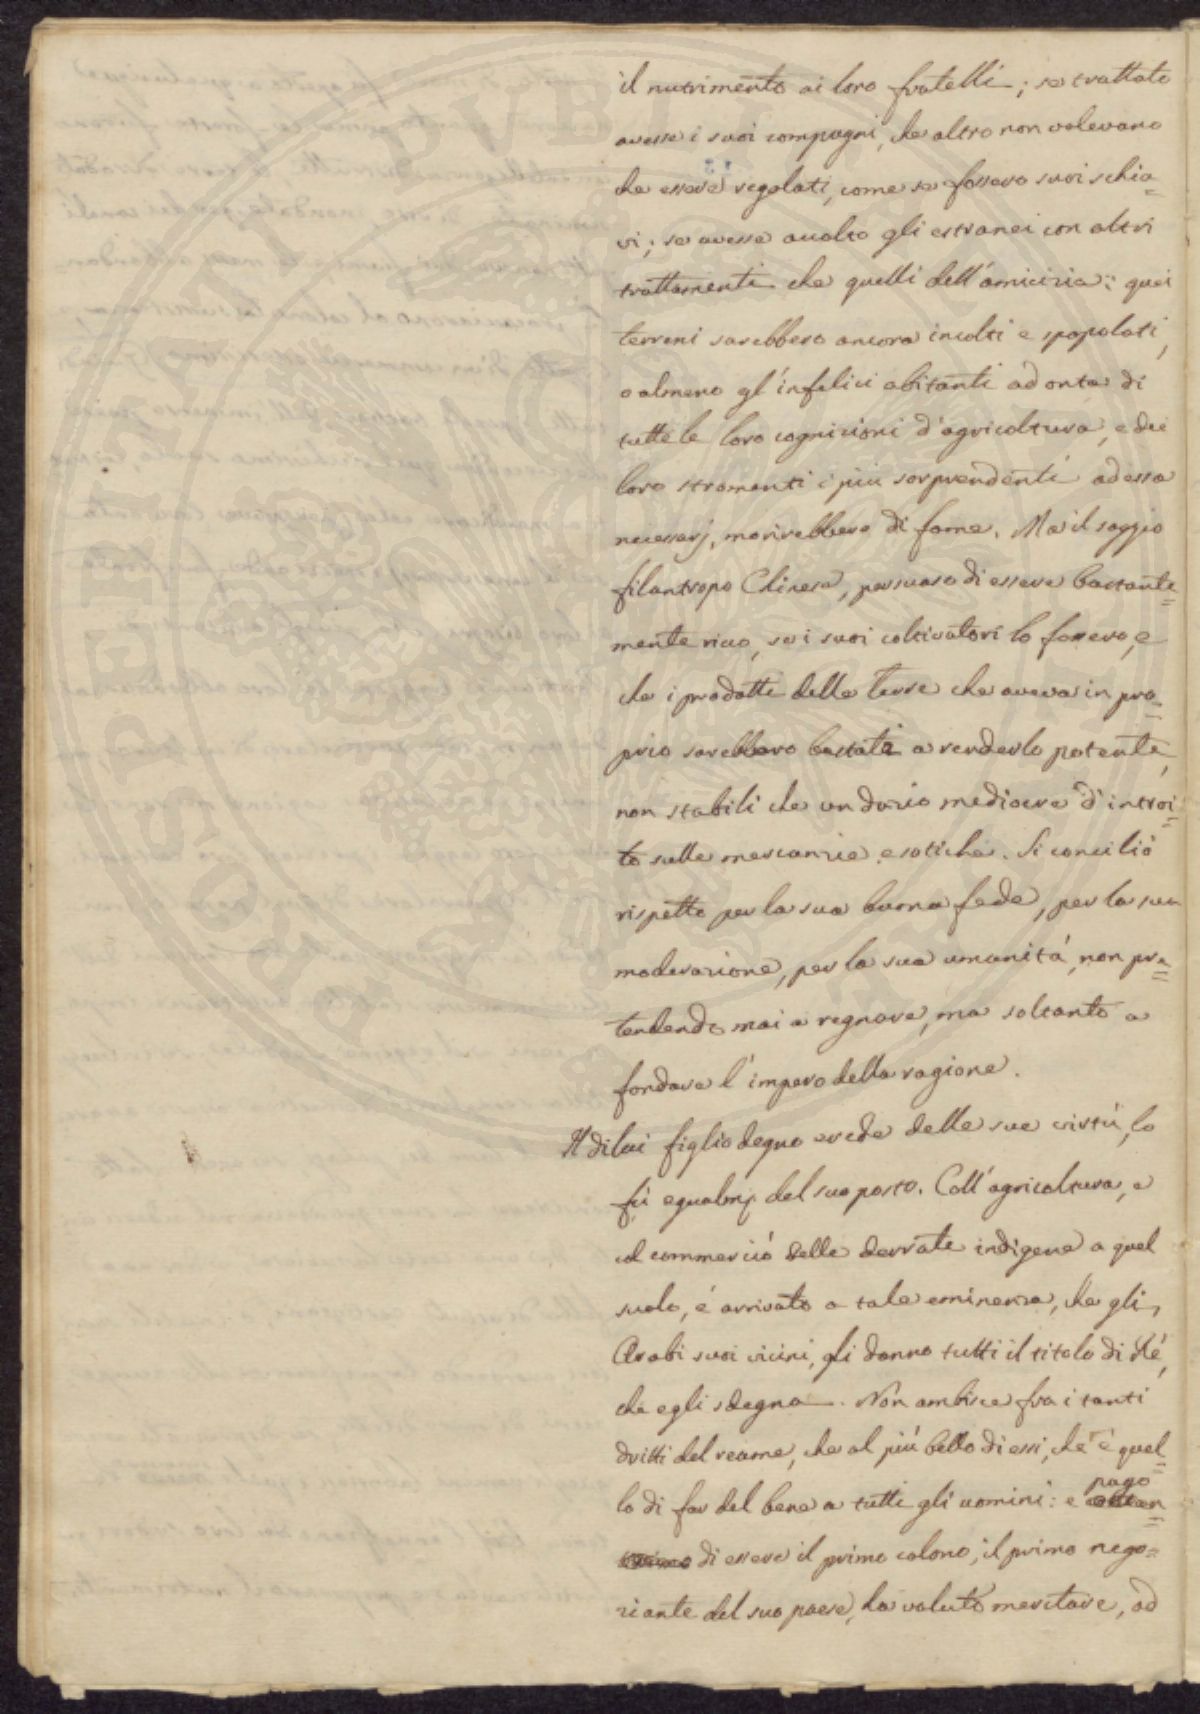 il nutrimento ai loro fratelli; se trattato
avesse i suoi compagni, che altro non volevano
che essere regolati, come se fossero suoi schia=
vi; se avesse avolto gli estranei con altri
trattamenti che quelli dell'amicizia; quei
terreni sarebbero ancora incolti e spopolati,
o almeno gl'infelici abitanti ad onta di
tutte le loro cognizioni d'agricoltura, e dei
loro stromenti i più sorprendenti ad essa
necessarj, morirebbero di fame. Ma il saggio
filantropo Chinese, persuaso di essere bastante=
mente ricco, se i suoi coltivatori lo fossero, e
che i prodotti delle terre che aveva in pro=
prio sarebbero bastati a renderlo potente,
non stabilì che un dazio mediocre d'introi=
to sulle mercanzie esotiche. Si conciliò
rispetto per la sua buona fede, per la sua
moderazione, per la sua umanitá, non pre=
tendendo mai a regnare, ma soltanto a
fondare l'impero della ragione.
Il di lui figlio degno erede delle sue virtú, lo
fú egualmẽ del suo posto. Coll'agricoltura, e
col commerció delle derrate indigene a quel
suolo, é arrivato a tale eminenza, che gli
Arabi suoi vicini, gli danno tutti il titolo di Ré,
che egli sdegna. Non ambisce fra i tanti
dritti del reame, che al piú bello di essi, che é quel=
lo di far del bene a tutti gli uomini: e pago
di essere il primo colono, il primo nego=
ziante del suo paese, ha voluto meritare, ad